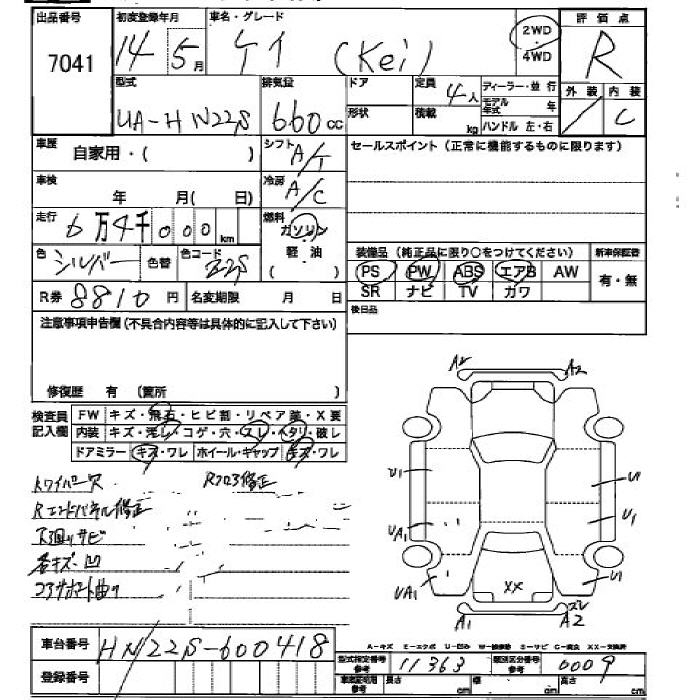 出品番号 初度登録年月 車名・グレード 2WD 評価点
7041 14 5月 ケイ (Kei) ・4WD R
型式 排気量 ドア 定員 4人 ディーラー・並行 外装 内装
UA-HN22S 660cc 形状 積載 kg モデル年式 年 / C
ハンドル 左・右
車歴 自家用・( ) シフト A/T セールスポイント(正常に機能するものに限ります)
車検 年 月( 日) 冷房 A/C
走行 6万4千000km 燃料 ガソリン
軽・油
( )
色 シルバー 色替 色コード Z2S 装備品(純正品に限り○をつけてください) 新車保証書
PS PW ABS エアB AW 有・無
R券 8810円 名変期限 月 日 SR ナビ TV カワ
注意事項申告欄(不具合内容等は具体的に記入して下さい) 後日品
修復歴 有 (箇所 )
検査員 FW キズ・飛石・ヒビ割・リペア薬・X要
記入欄 内装 キズ・汚レ・コゲ・穴・スレ・ヘタリ・破レ
ドアミラー キズ・ワレ ホイール・キャップ キズ・ワレ
A2 A2
U1 U1
UA1 U1
UA1 U1
XX
A1 スレ
A2
Rワイパー欠 Rフロア修正
Rエンドパネル修正
下廻りサビ
各キズ・凹
コアサポート曲り
車台番号 HN22S-600418
A-キズ E-エクボ U-凹み W-補修跡 S-サビ C-腐食 XX-交換済
型式指定番号 参考 11363 類別区分番号 参考 0009
登録番号 長さ cm 幅 cm 高さ cm